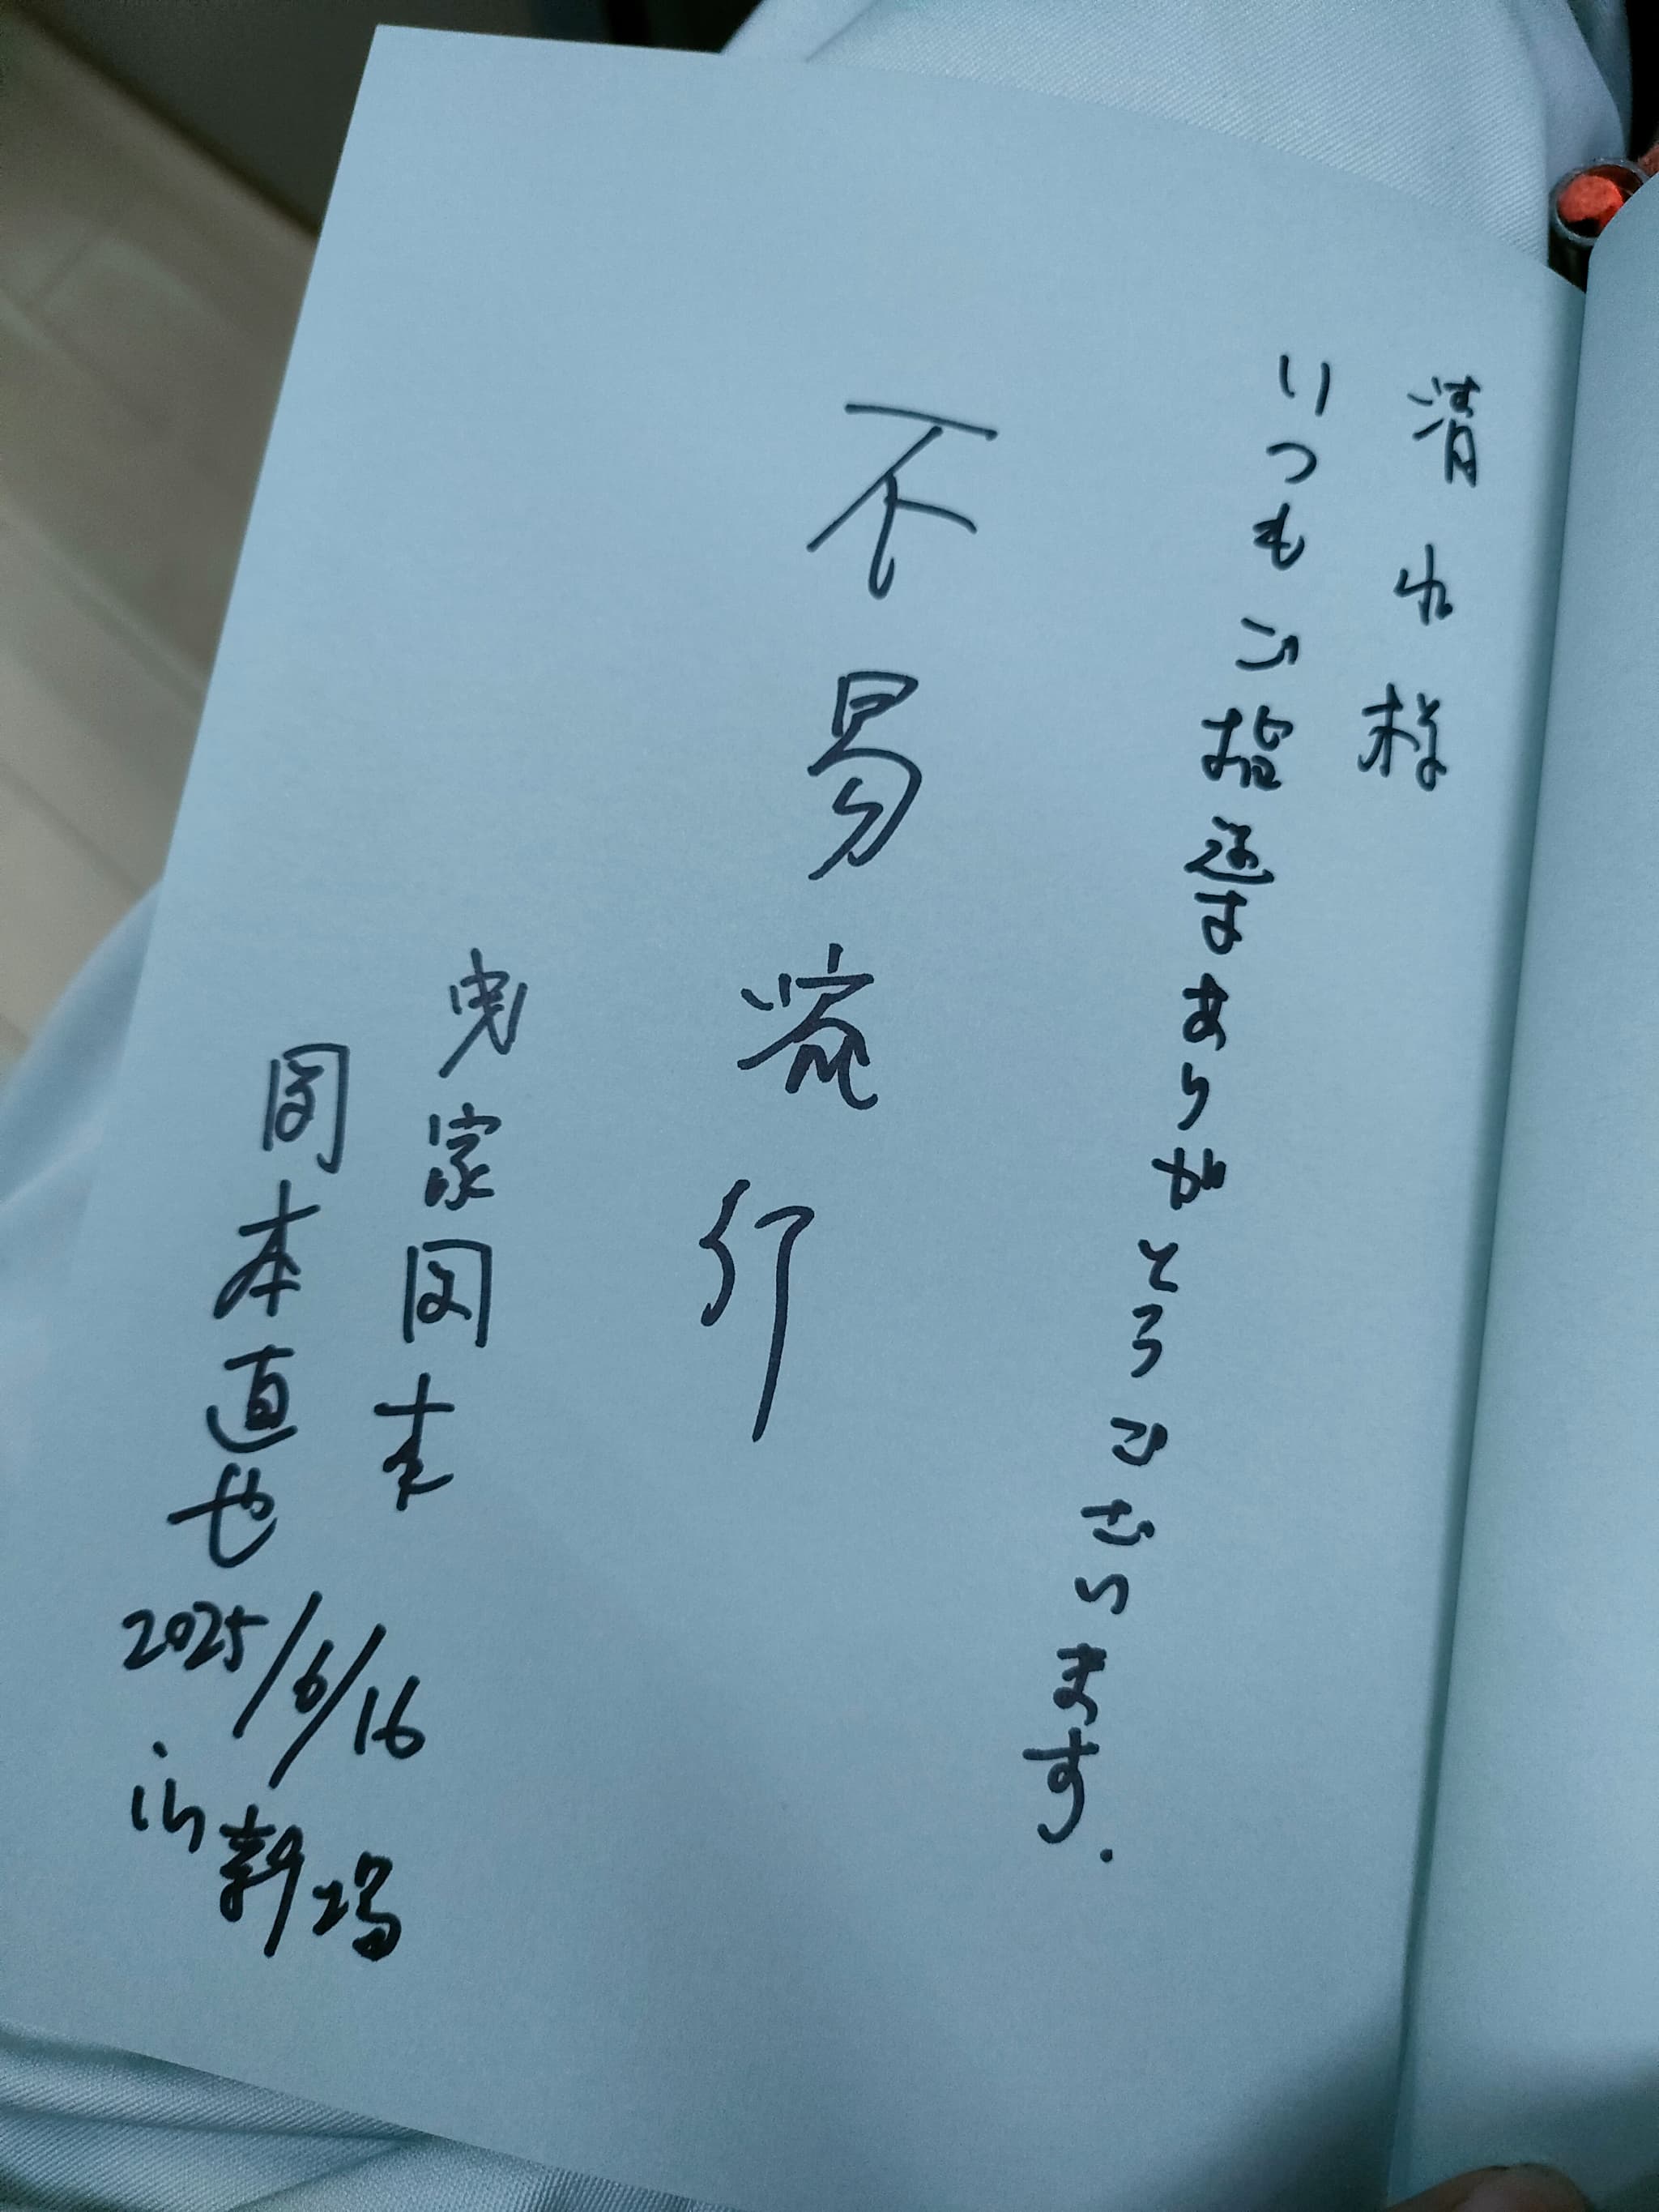 清水様
いつもご指導ありがとうございます.
不易流行
曳家岡本
岡本直也
2025/6/16
in新潟